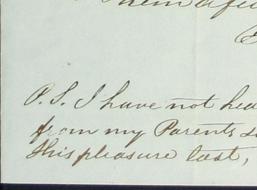 P.S. I have not hea
from my Parents
this pleasure last,